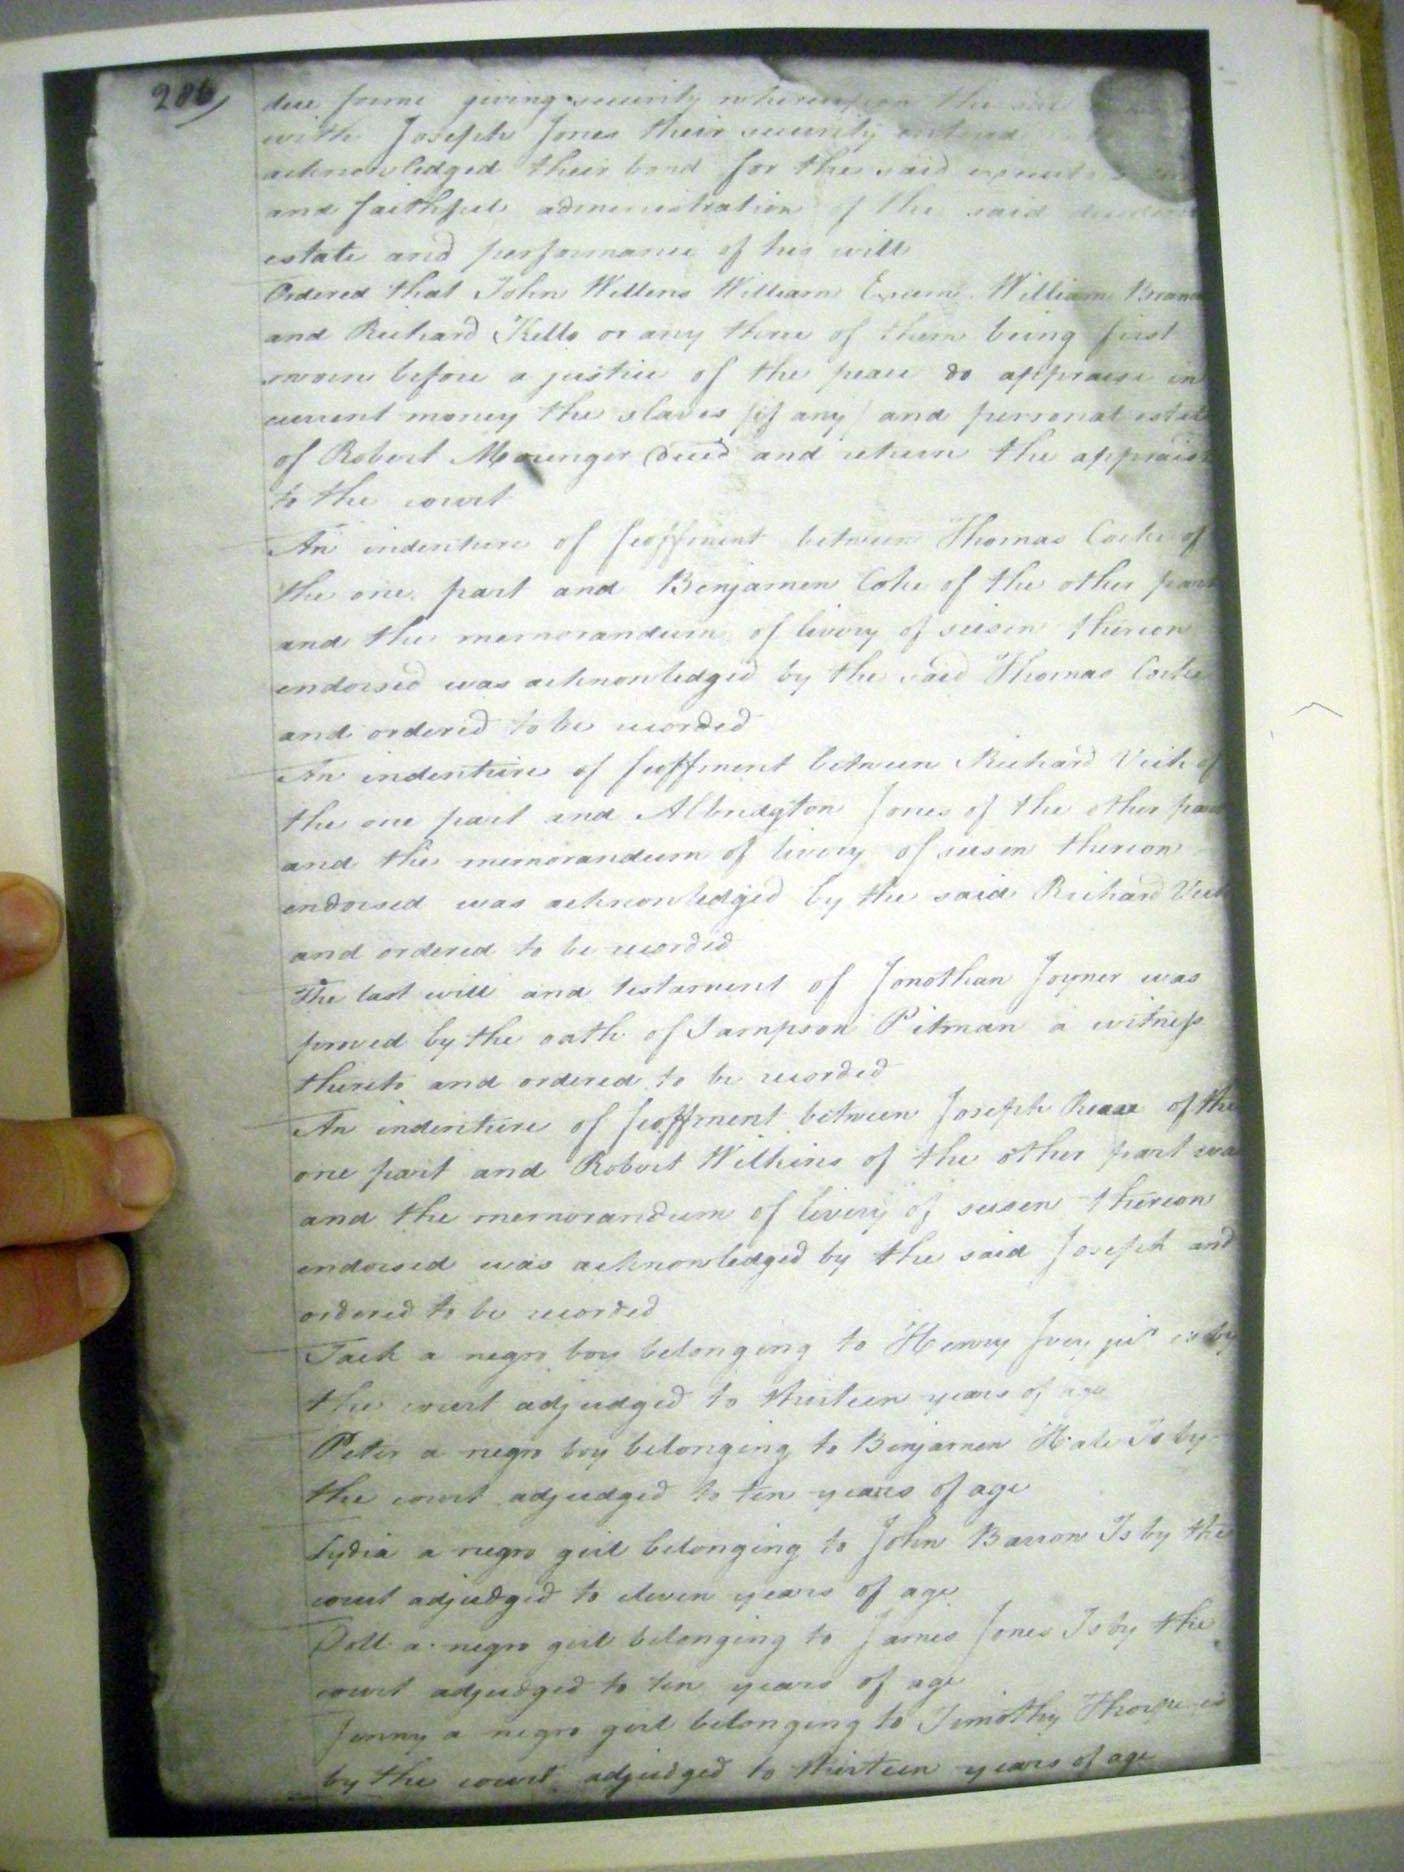 286
due forme giving security whereupon the
with Joseph Jones their security entered
acknowledged their bond for the said
and faithful administration of the said
estate and performance of his will
Ordered that John Willens William Exum William
and Richard Kello or any three of them being first
sworn before a justice of the peace do appraise in
current money the slaves (if any) and personal estate
of Robert Mounger Decd and return the
to the court
An indenture of feoffment between Thomas Cocke of
the one part and Benjamen Coke of the other part
and the memorandum of livery of seisen thereon
endorsed was acknowledged by the said Thomas Cocke
and ordered to be recorded
An indenture of feoffment between Richard Vick of
the one part and Albridgton Jones of the other part
and the memorandum of livery of seisen thereon
endorsed was acknowledged by the said Richard Vick
and ordered to be recorded
The last will and testament of Jonothan Joyner was
proved by the oath of Sampson Pitman a witness
thereto and ordered to be recorded
An indenture of feoffment between Joseph of the
one part and Robert Wilkins of the other part was
and the memorandum of livery of seisen thereon
endorsed was acknowledged by the said Joseph and
ordered to be recorded
Jack a negro boy belonging to Henry Ivey junr is by
the court adjudged to thirteen years of age
Peter a negro boy belonging to Benjamen Hale Is by
the court adjudged to ten years of age
Lydia a negro girl belonging to John Barrow Is by the
court adjudged to eleven years of age
Doll a negro girl belonging to James Jones Is by the
court adjudged to ten years of age
Jenny a negro girl belonging to Timothy Thorpe is
by the court adjudged to thirteen years of age